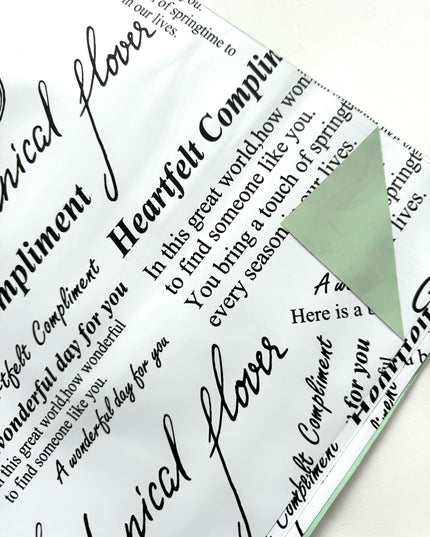 you.
of springtime to
in our lives.
nical flover
Heartfelt Complin
In this great world,how won
to find someone like you.
You bring a touch of springt
every season our lives.
springe
lives.
A w
Here is a t
mpliment
rtfelt Compliment
wonderful day for you
n this great world,how wonderful
to find someone like you.
A wonderful day for you
nical flover
Compliment
for you